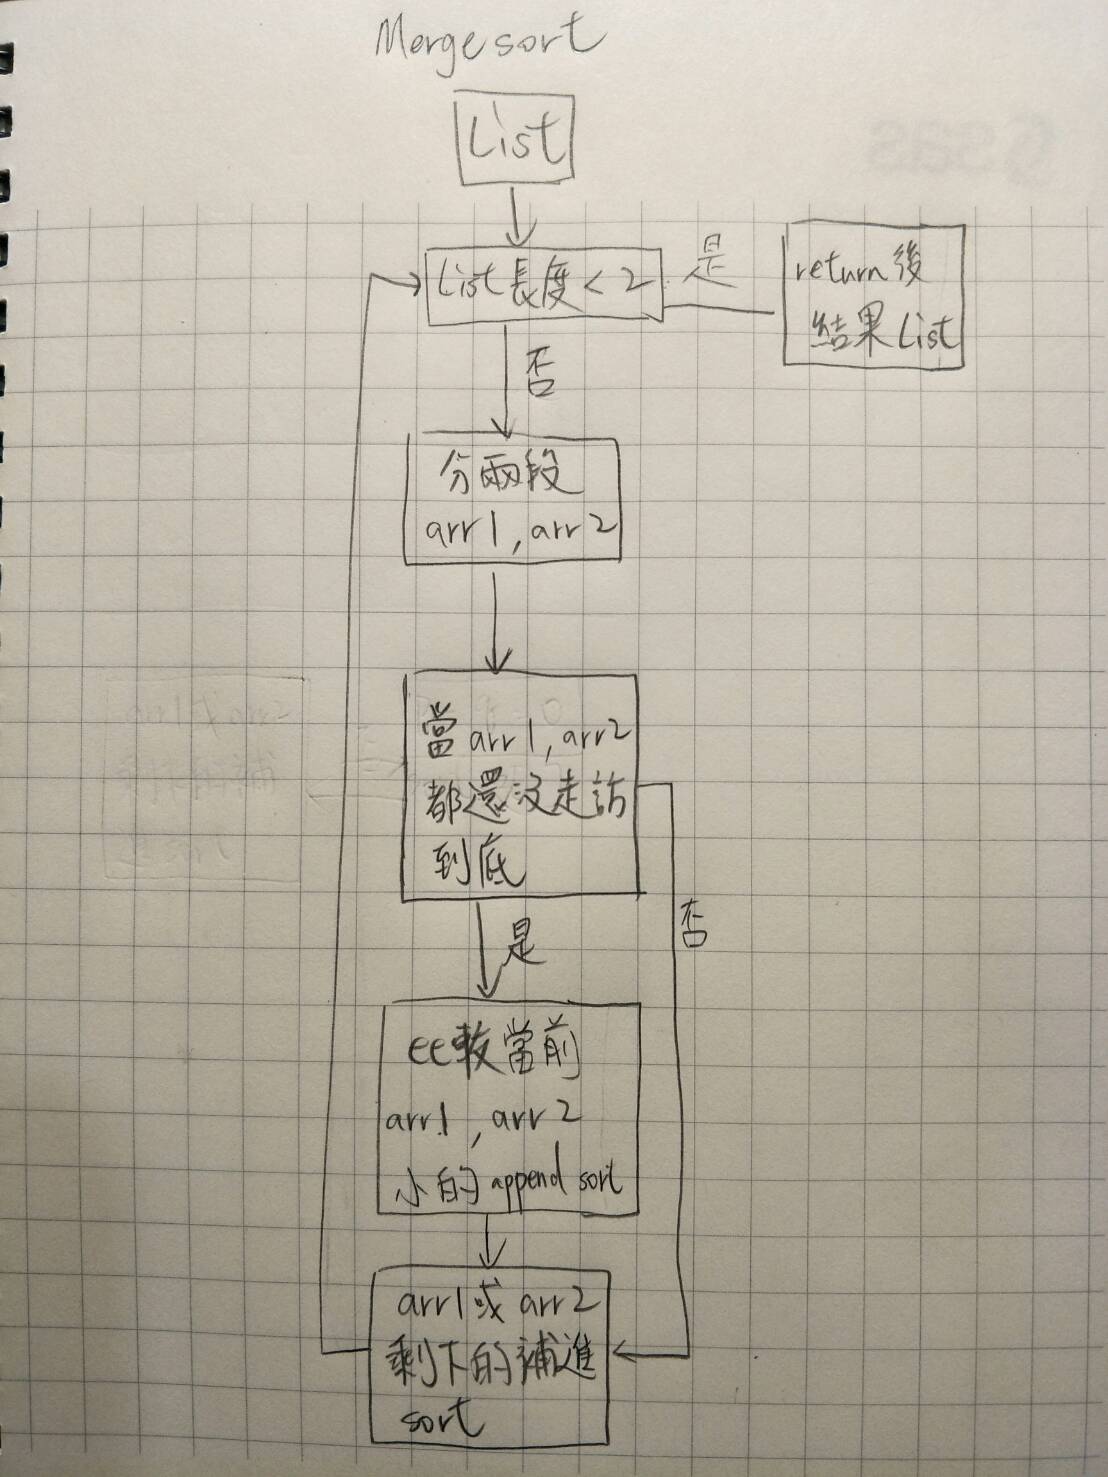 Merge sort
List
List長度<2
是
return後
結果List
否
分兩段
arr1, arr2
當arr1, arr2
都還沒走訪
到底
否
是
比較當前
arr1, arr2
小的append sort
arr1或arr2
剩下的補進
sort